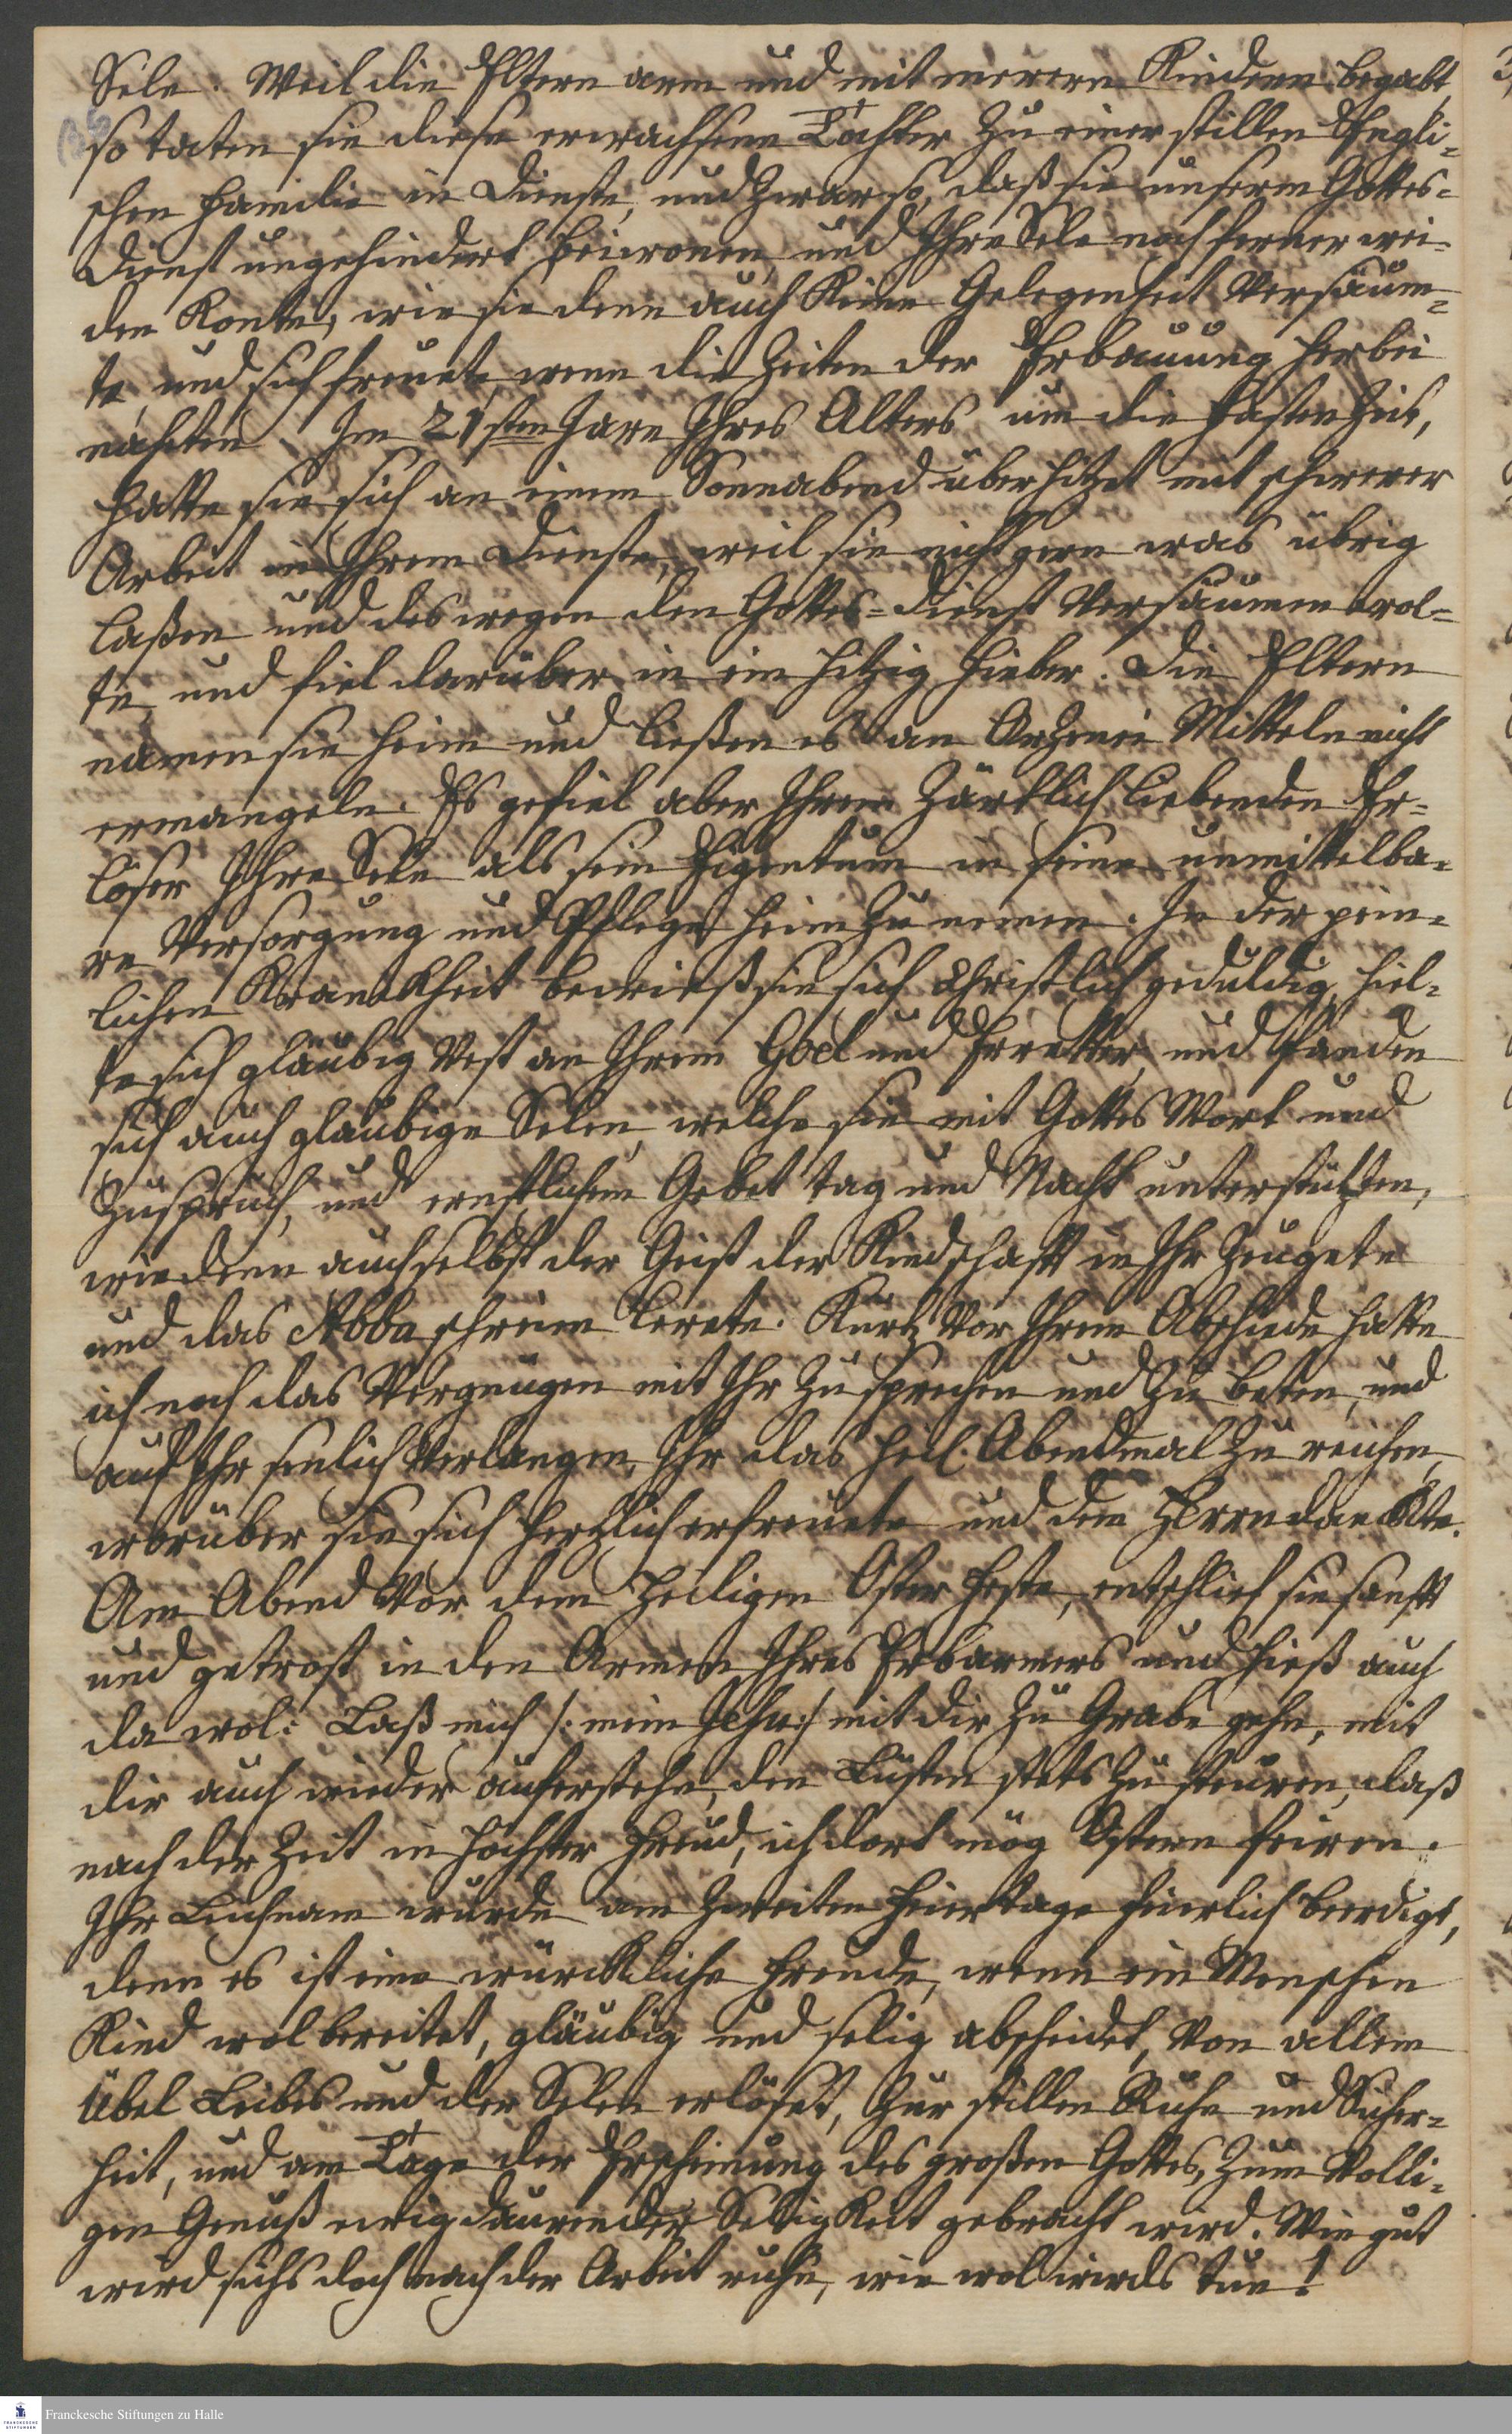 Sele. Weil die Eltern arm und mit mereren Kindern begabt,
so taten sie diese erwachsene Tochter zu einer stillen Engli-
schen Familie in Dienste, und zwar so, daß sie unserm Gottes-
Dienst ungehindert beiwonen, und Ihre Sele noch ferner wei-
den konte, wie sie denn auch keine Gelegenheit versäum-
te, und sich freuete, wenn die Zeiten der Erbauung herbei
nahten. Im 21sten Jare Ihres Alters um die Fastenzeit,
hatte sie sich an einem Sonnabend überhitzet mit schwerer
Arbeit in Ihrem Dienste, weil sie nicht gern was übrig
laßen und deswegen den Gottes-Dienst versäumen wol-
te, und fiel darüber in ein hitzig Fieber. Die Eltern
namen sie heim und ließen es an Arzenei Mitteln nicht
ermangeln. Es gefiel aber Ihrem zärtlich liebenden Er-
löser Ihre Sele als sein Eigentum in seine unmittelba-
re Versorgung und Pflege heim zu nemen. In der pein-
lichen Kranckheit bewieß sie sich Christlich geduldig, hiel-
te sich gläubig vest an Ihrem Goel und Erretter, und fanden
sich auch gläubige Selen, welche sie mit Gottes Wort und
Zuspruch, und ernstlichem Gebet tag und Nacht unterstützten,
wie denn auch selbst der Geist der Kindschafft in Ihr zeugete
und das Abba schreien lerete. Kurtz vor Ihrem Abschiede hatte
ich noch das Vergnügen mit Ihr zu sprechen und zu beten, und
auf Ihr senlich Verlangen, Ihr das heil. Abendmal zu reichen,
worüber sie sich hertzlich erfreuete und dem HErrn danckte.
Am Abend vor dem heiligen Oster Feste, entschlief sie sanfft
und getrost in den Armen Ihres Erbarmers und hieß auch
da wol: Laß mich /: mein JEsu :/ mit dir zu Grabe gehn, mit
dir auch wieder auferstehn, den Lüsten stets zu steuren, daß
nach der Zeit in höchster Freud, ich dort mög Ostern feiren.
Ihr Leichnam wurde am zweiten Feiertage feierlich beerdigt,
denn es ist eine würckliche Freude, wenn ein Menschen
Kind wol bereitet, gläubig und selig abscheidet, von allem
Übel Leibes und der Selen erlöset, zur stillen Ruhe und Sicher-
heit, und am Tage der Erscheinung des großen Gottes, zum völli-
gen Genuß ewig daurender Seligkeit gebracht wird. Wie gut
wird sichs doch nach der Arbeit ruhn, wie wol wirds tun!
Franckesche Stiftungen zu Halle